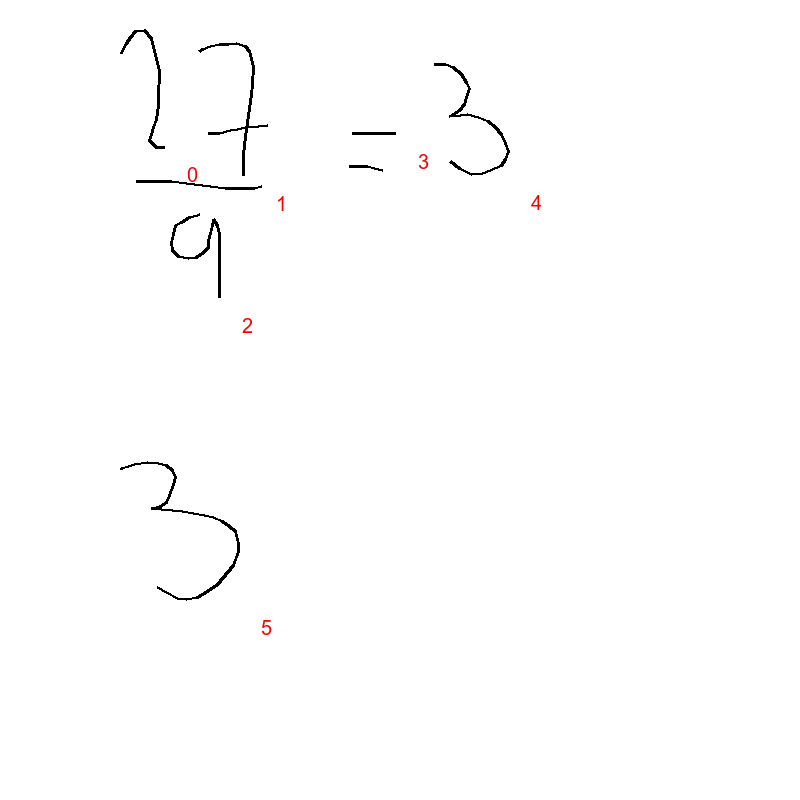 27/9 = 3
0 1 2 3 4
3
5